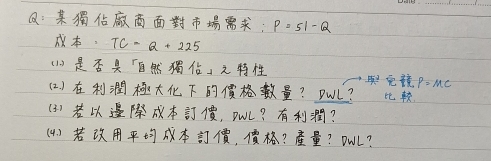 Date
Q: 某獨佔廠商面對市場需求: P = 51 - Q
成本: TC = Q + 225
(1.) 是否具「自然獨佔」之特性
(2.) 在利潤極大化下的價格數量? DWL? → 與完競 P = MC 比較
(3.) 若以邊際成本訂價, DWL? 有利潤?
(4.) 若改用平均成本訂價, 價格? 產量? DWL?